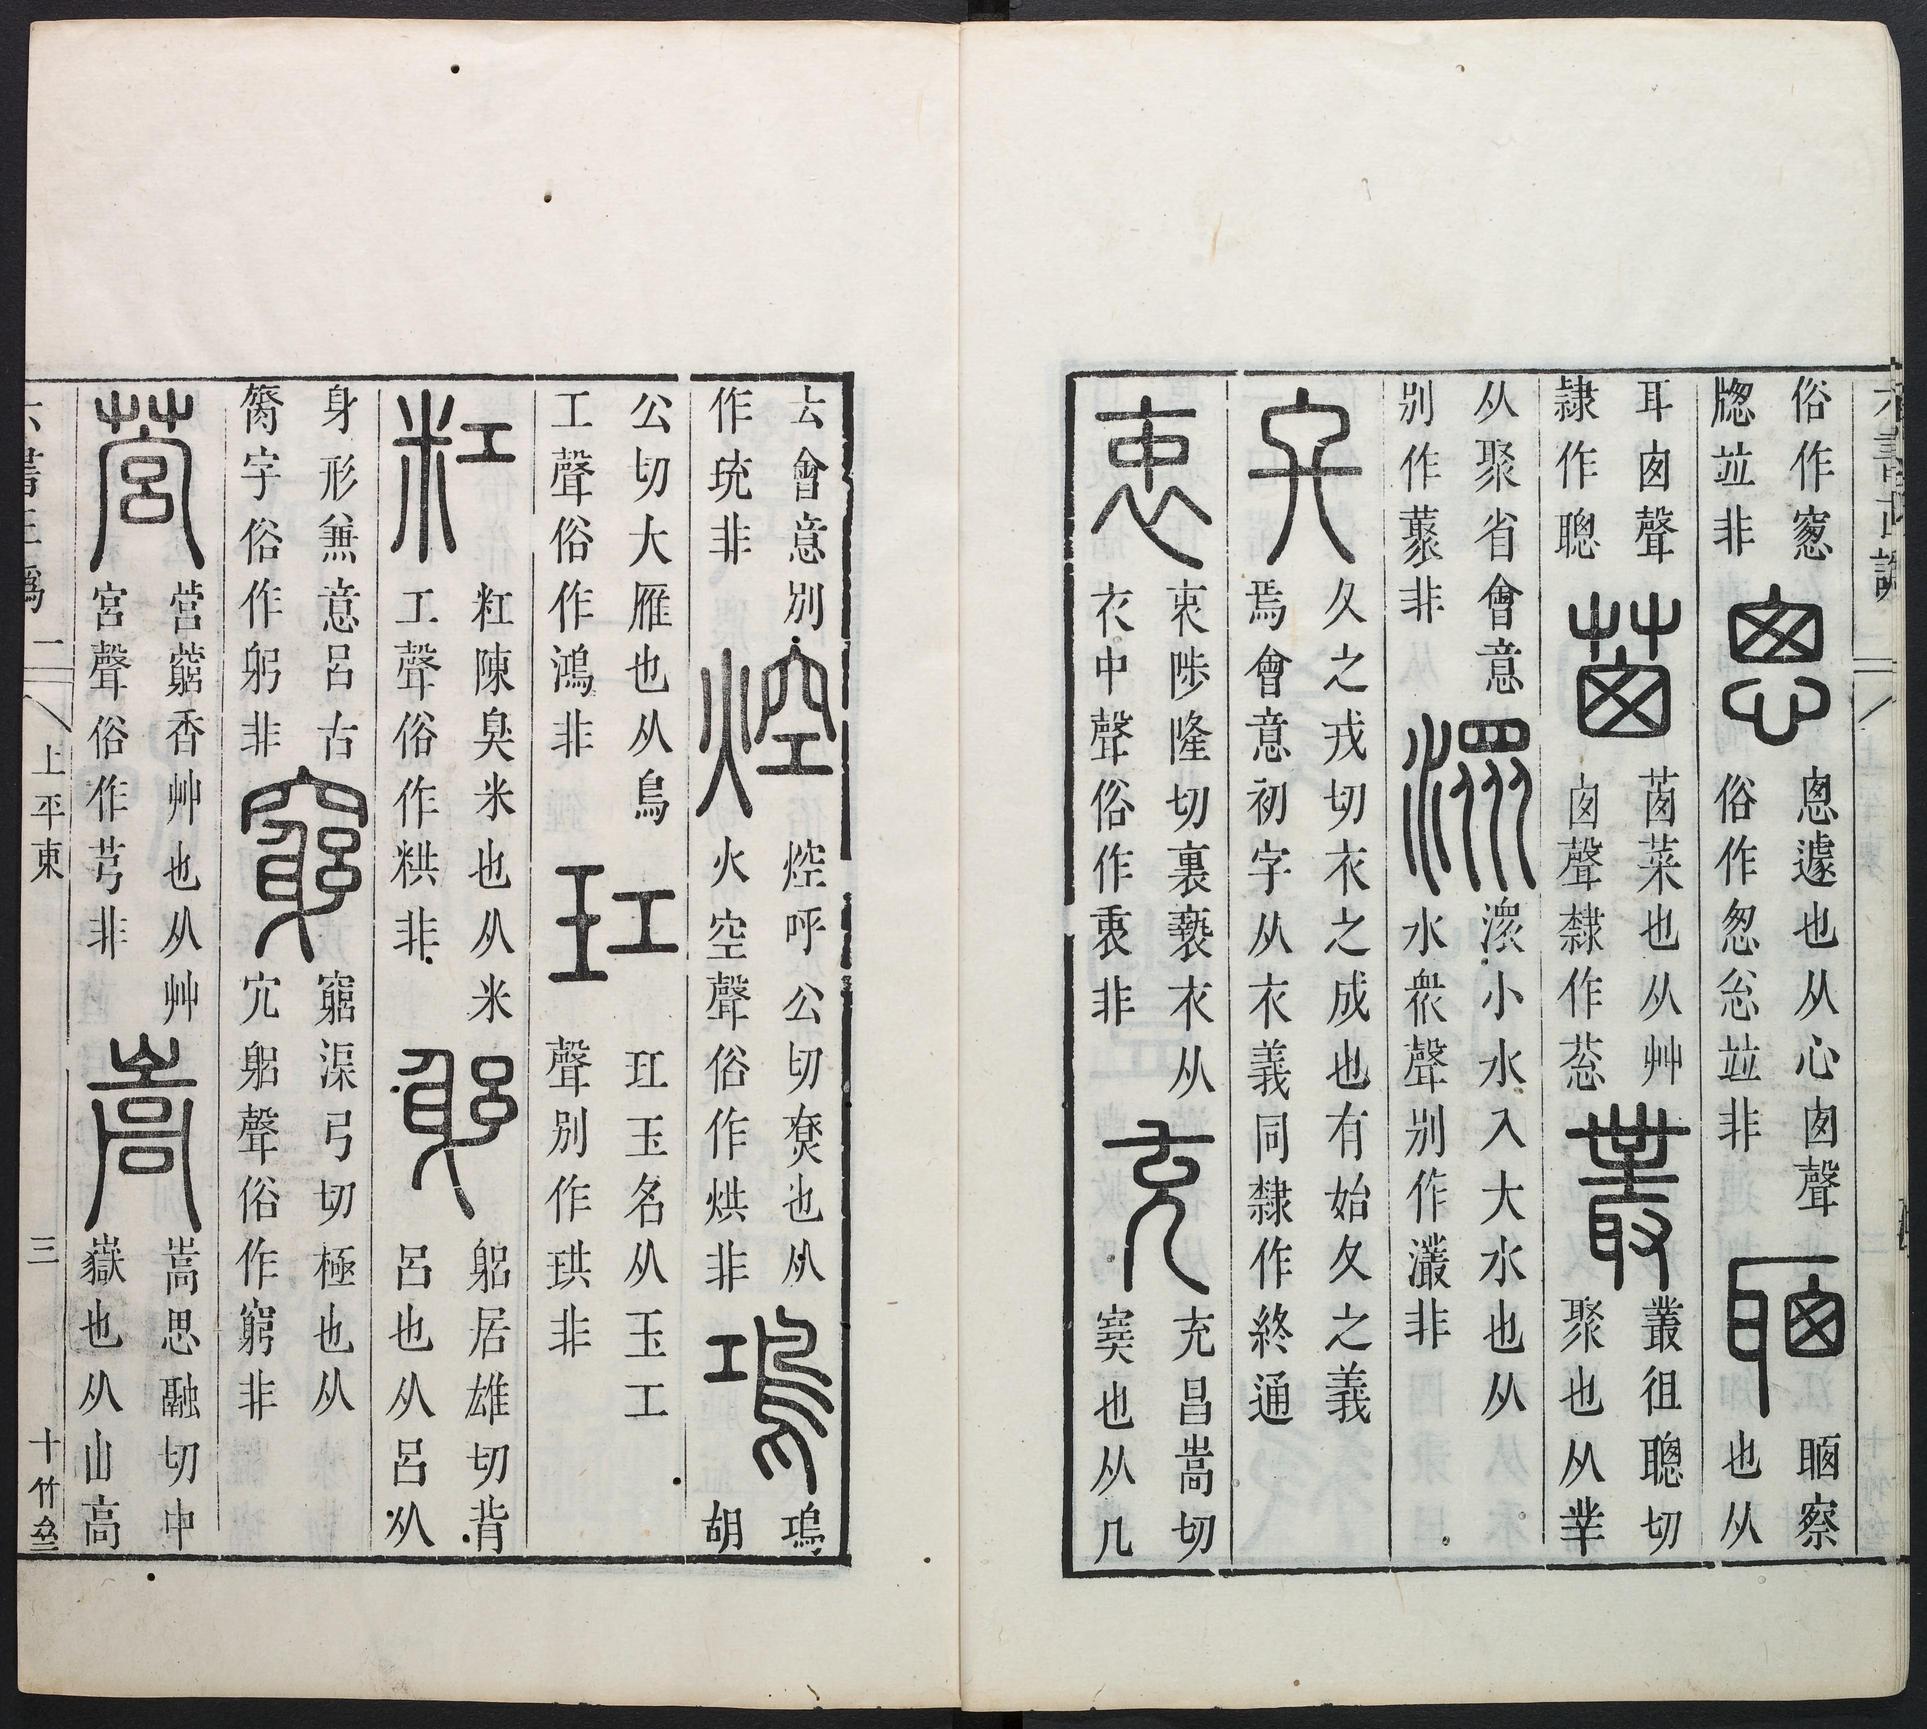 俗作窻
牕竝非
悤遽也从心囪聲
俗作怱忩竝非
聰察
也从
耳囪聲
隷作聰
茵菜也从艸
囪聲隸作䓗
叢徂聰切
聚也从丵
从聚省會意
別作藂非
潨小水入大水也从
水衆聲別作灇非
久之戎切衣之成也有始久之義
焉會意初字从衣義同隸作終通
衷陟隆切裏褻衣从
衣中聲俗作衷非
充昌嵩切
窫也从几
𠫓會意別
作珫非
焢呼公切尞也从
火空聲俗作烘非
鳿
胡
公切大雁也从鳥
工聲俗作鴻非
玒玉名从玉工
聲別作珙非
粠陳臭米也从米
工聲俗作粠非
躳居雄切背
呂也从呂从
身形兼意呂古
膂字俗作躬非
竆渠弓切極也从
穴躳聲俗作窮非
营藭香艸也从艸
宮聲俗作芎非
嵩思融切中
嶽也从山高
六書正譌 二 上平東 三 十竹齋